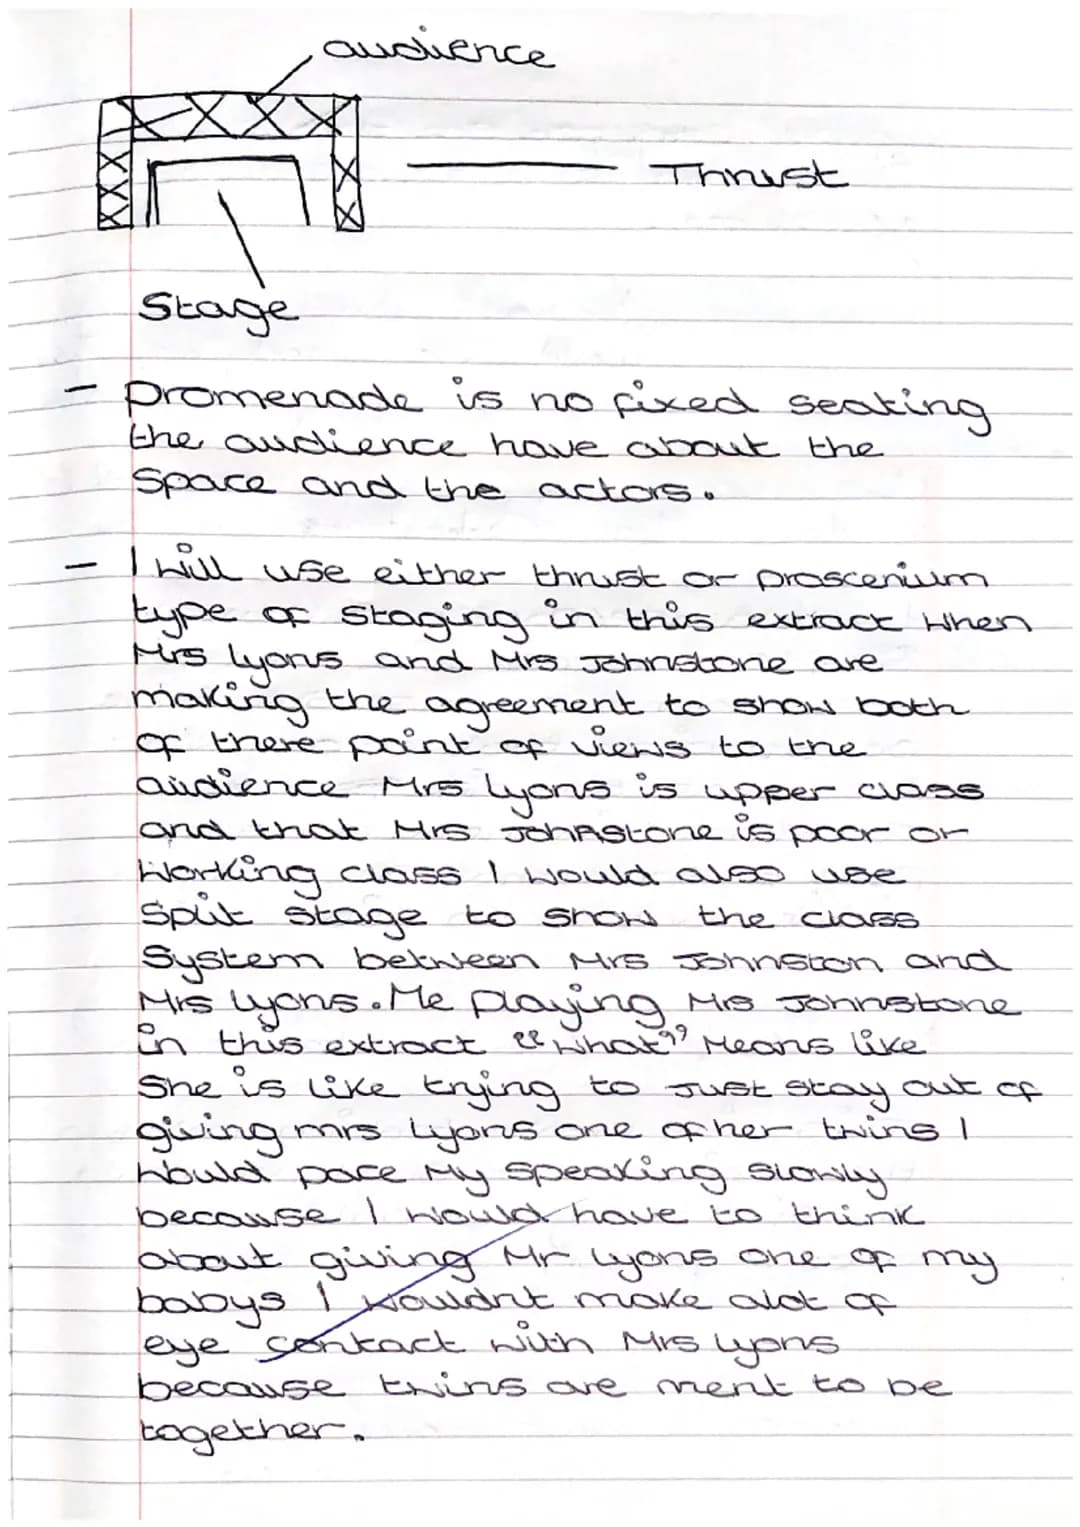 audience
Thrust
Stage
- Promenade is no fixed seating
the audience have about the
space and the actors.
- I will use either thrust or proscenium
type of staging in this extract when
Mrs lyons and Mrs Johnstone are
making the agreement to show both
of there point of views to the
audience Mrs lyons is upper class
and that Mrs Johnstone is poor or
working class I would also use
split stage to show the class
system between Mrs Johnston and
Mrs lyons. Me playing Mrs Johnstone
in this extract "what" Means like
she is like trying to just stay out of
giving mrs lyons one of her twins I
would pace my speaking slowly
because I would have to think
about giving Mr lyons one of my
babys I wouldnt make alot of
eye contact with Mrs lyons
because twins are ment to be
together.